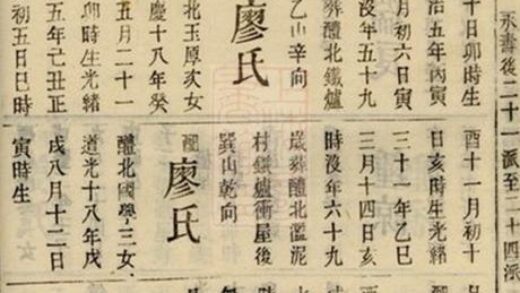 永壽後二十一派至二十四派
十日卯時生
治五年丙寅
月初六日寅
没年五十九
葬醴北鐵爐
乙山辛向
廖氏
北玉厚次女
慶十八年癸
五月二十一
卯時生光緒
五年己丑正
初五日巳時
酉十一月初十
日亥時生光緒
三十一年乙巳
三月十四日亥
時没年六十九
歲葬醴北濫泥
村鐵爐衝屋後
巽山乾向
配廖氏
醴北國學三女
道光十八年戊
戌八月十二日
寅時生